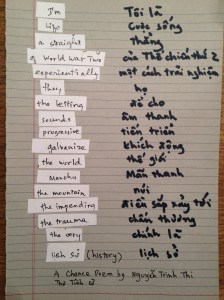 I'm Tôi là
life Cuộc sống
a straight thẳng
of World War Two của Thế chiến thứ 2
experientially một cách trải nghiệm
they họ
the letting để cho
sounds âm thanh
progressive tiến triển
galvanize khích động
the world thế giới
Manchu Mãn thanh
the mountain núi
the impending diễn sắp xảy tới
the trauma chấn thương
the very chính là
lịch sử (history) lịch sử
A Chance Poem by Nguyễn Trinh Thi
Thơ Tình cờ